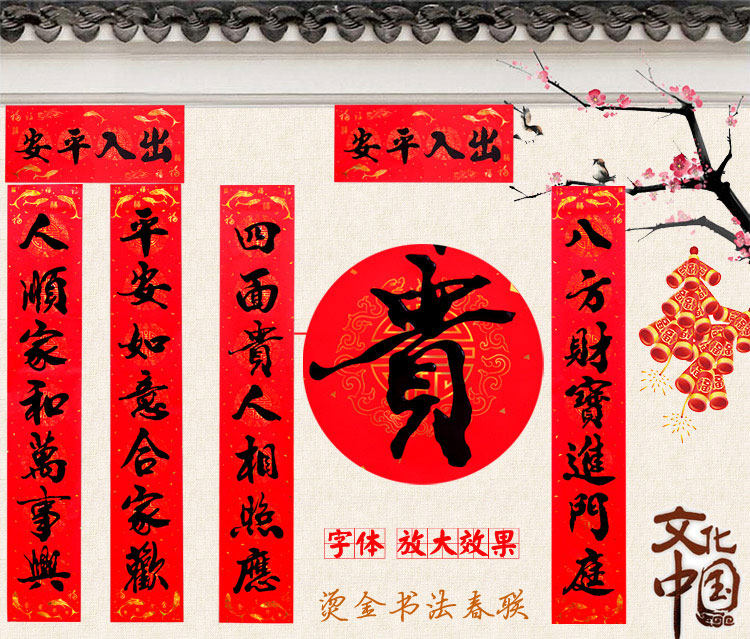 出入平安
出入平安
人順家和萬事興
平安如意合家歡
四面貴人相照應
貴
八方財寶進門庭
字体 放大效果
烫金书法春联
文化
中国